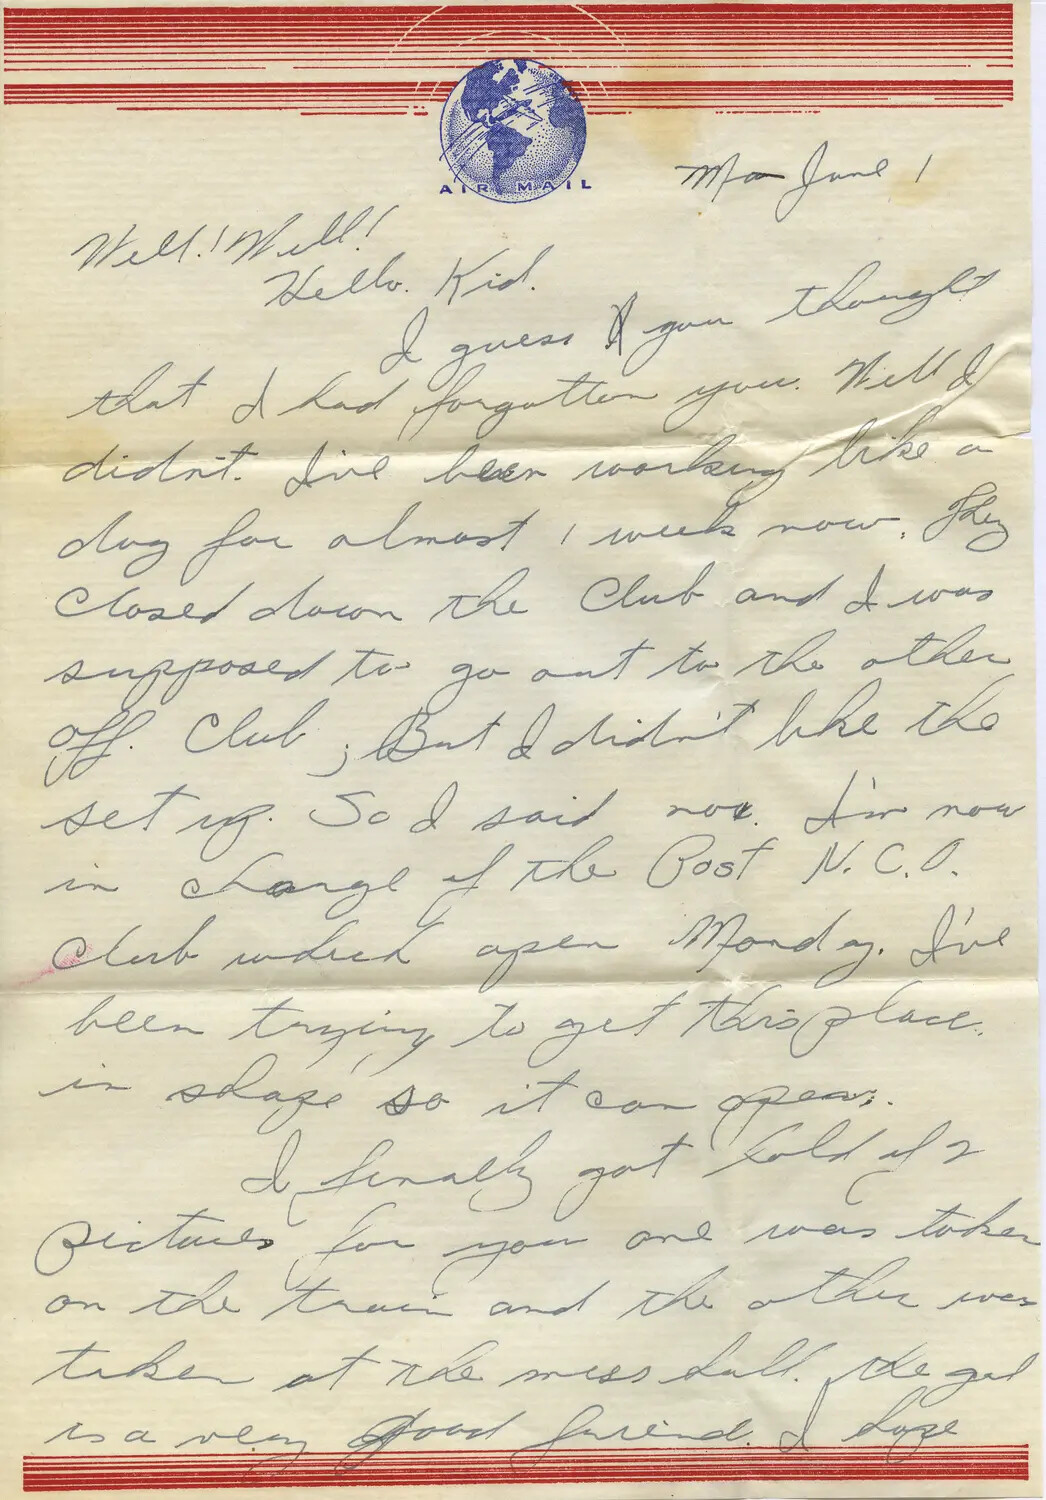 AIR MAIL
Mo June 1
Well! Well!
Hello. Kid.
I guess you thought
that I had forgotten you. Well I
didn't. I've been working like a
dog for almost 1 week now. They
closed down the Club and I was
supposed to go out to the other
off. Club, But I didn't like the
set up. So I said no. I'm now
in charge of the Post N.C.O.
Club which open Monday. I've
been trying to get this place.
in shape so it can open.
I finally got hold of 2
pictures for you one was taken
on the train and the other was
taken at the mess hall. the gal
is a very good freind. I hope